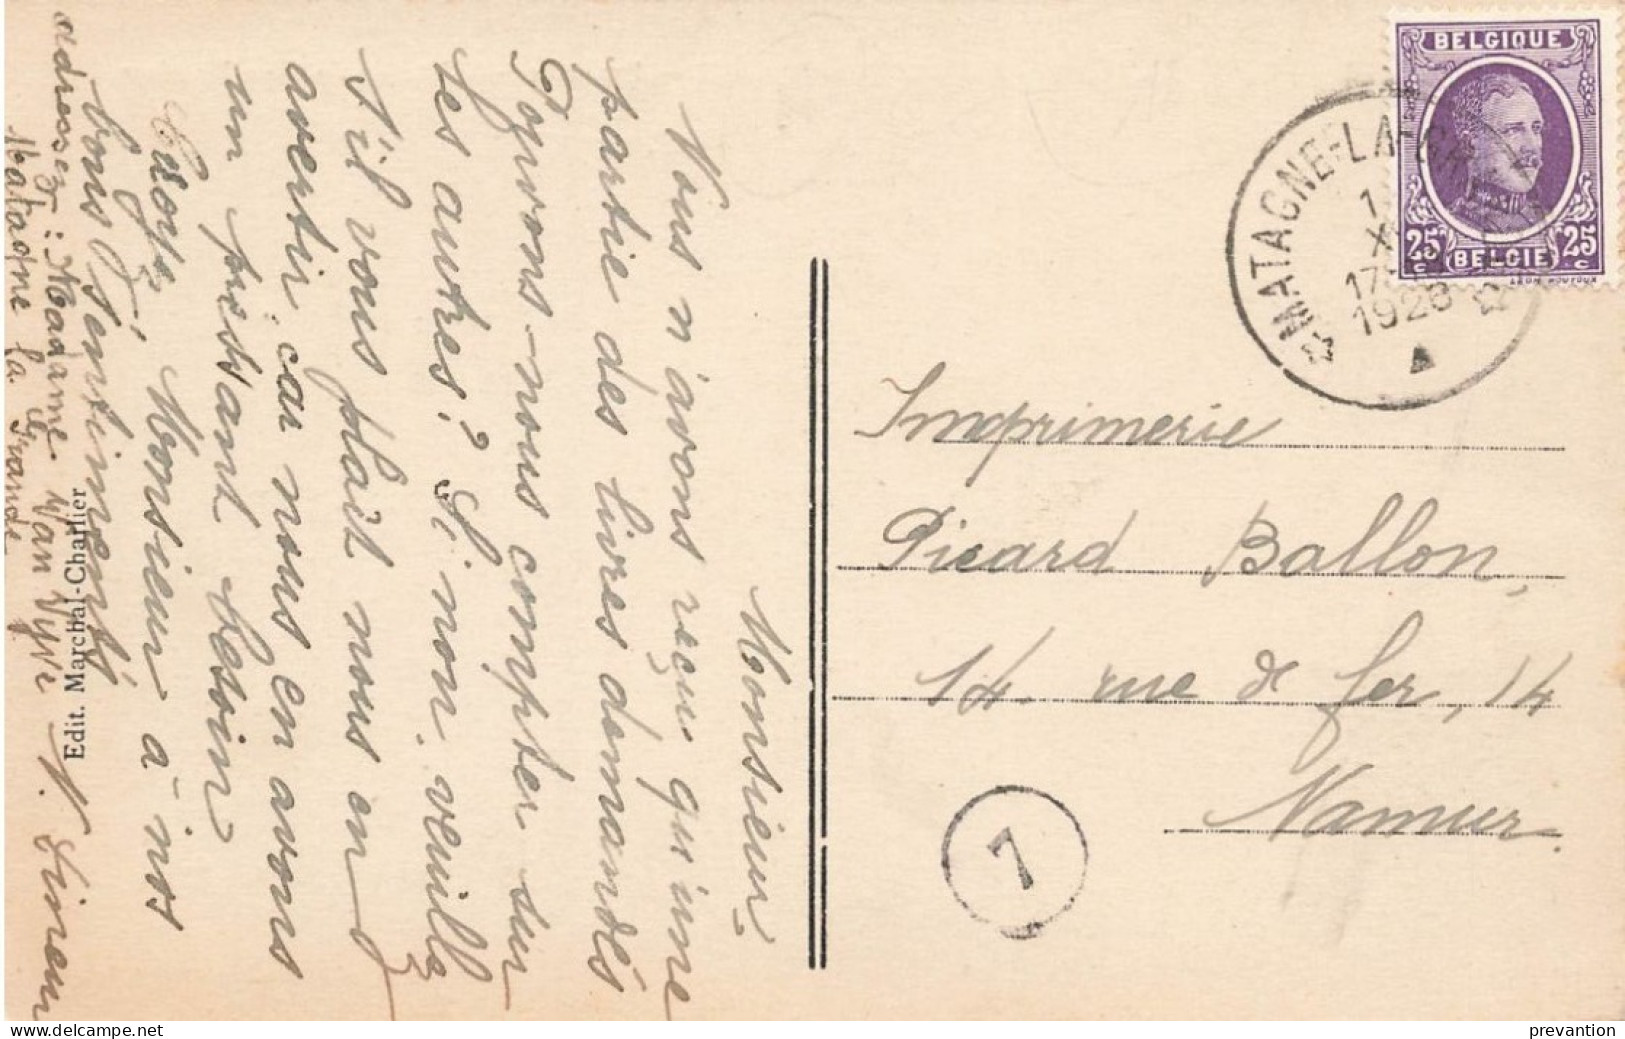 Monsieur,
Nous n'avons reçu qu'une
partie des livres demandés
Pouvons-nous compter sur
les autres? Si non, veuillez
s'il vous plait nous en
avertir car nous en avons
un pressant besoin
Croyez, Monsieur à nos
bons sentiments
N. Sineux
adresse: Madame Van Nypé
Matagne la Grande
Edit. Marchal-Charlier
BELGIQUE
25 c BELGIE 25 c
MATAGNE-LA-GRANDE
1926
Imprimerie
Picard Ballon,
14. rue de fer, 14
Namur.
7
delcampe.net
prevantion